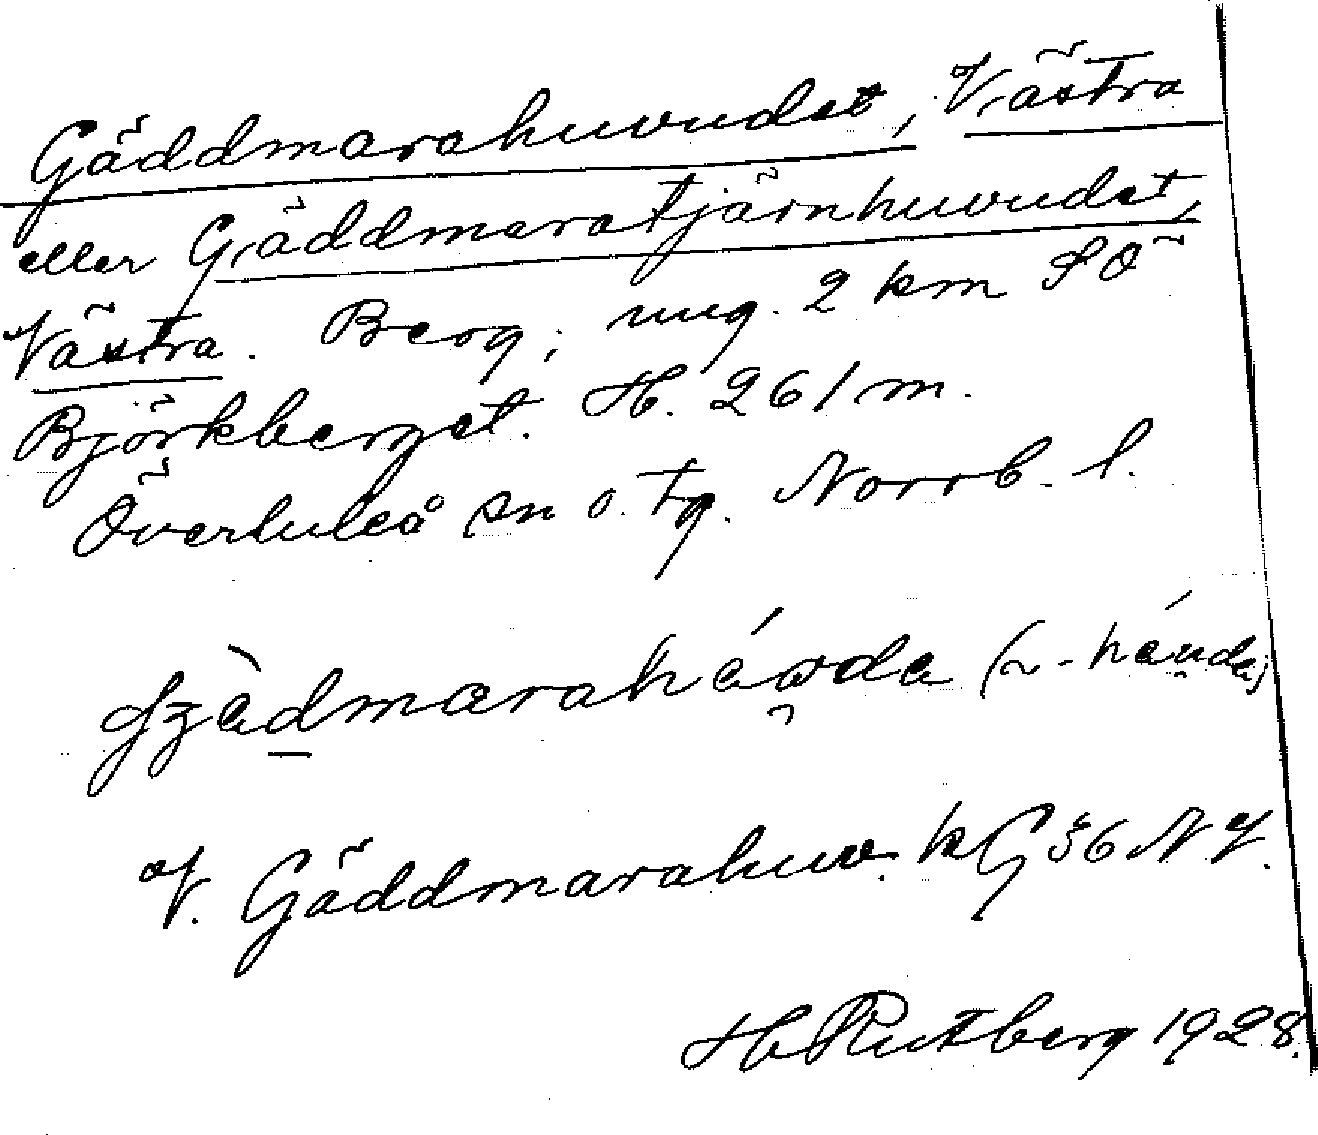 Gäddmarahuvudet, Västra
eller Gäddmaratjärnhuvudet,
Västra. Berg; ung. 2 km SÖ
Björkberget. H. 261 m.
Överluleå sn o. tg. Norrb. l.
(~ -
V. Gäddmarahuv. kG 36 N.V.
H. Rutberg 1928.